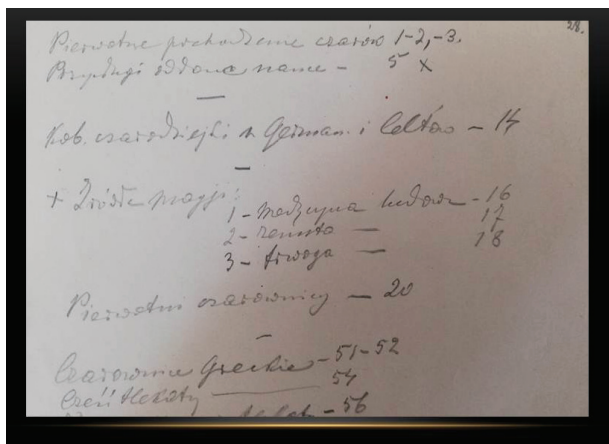 28.
Pierwotne pochodzenie czarów 1-2,-3.
oddane same - 5 x
Kob. czarodziejki u German. i Celtów - 14
+ Źródła magji:
1 - Medycyna ludowa - 16
2 - zemsta — 17
3 - trwoga — 18
Pierwotni czarownicy - 20
Czarownice Greckie - 51-52
Cześć Hekaty — 54
- 56